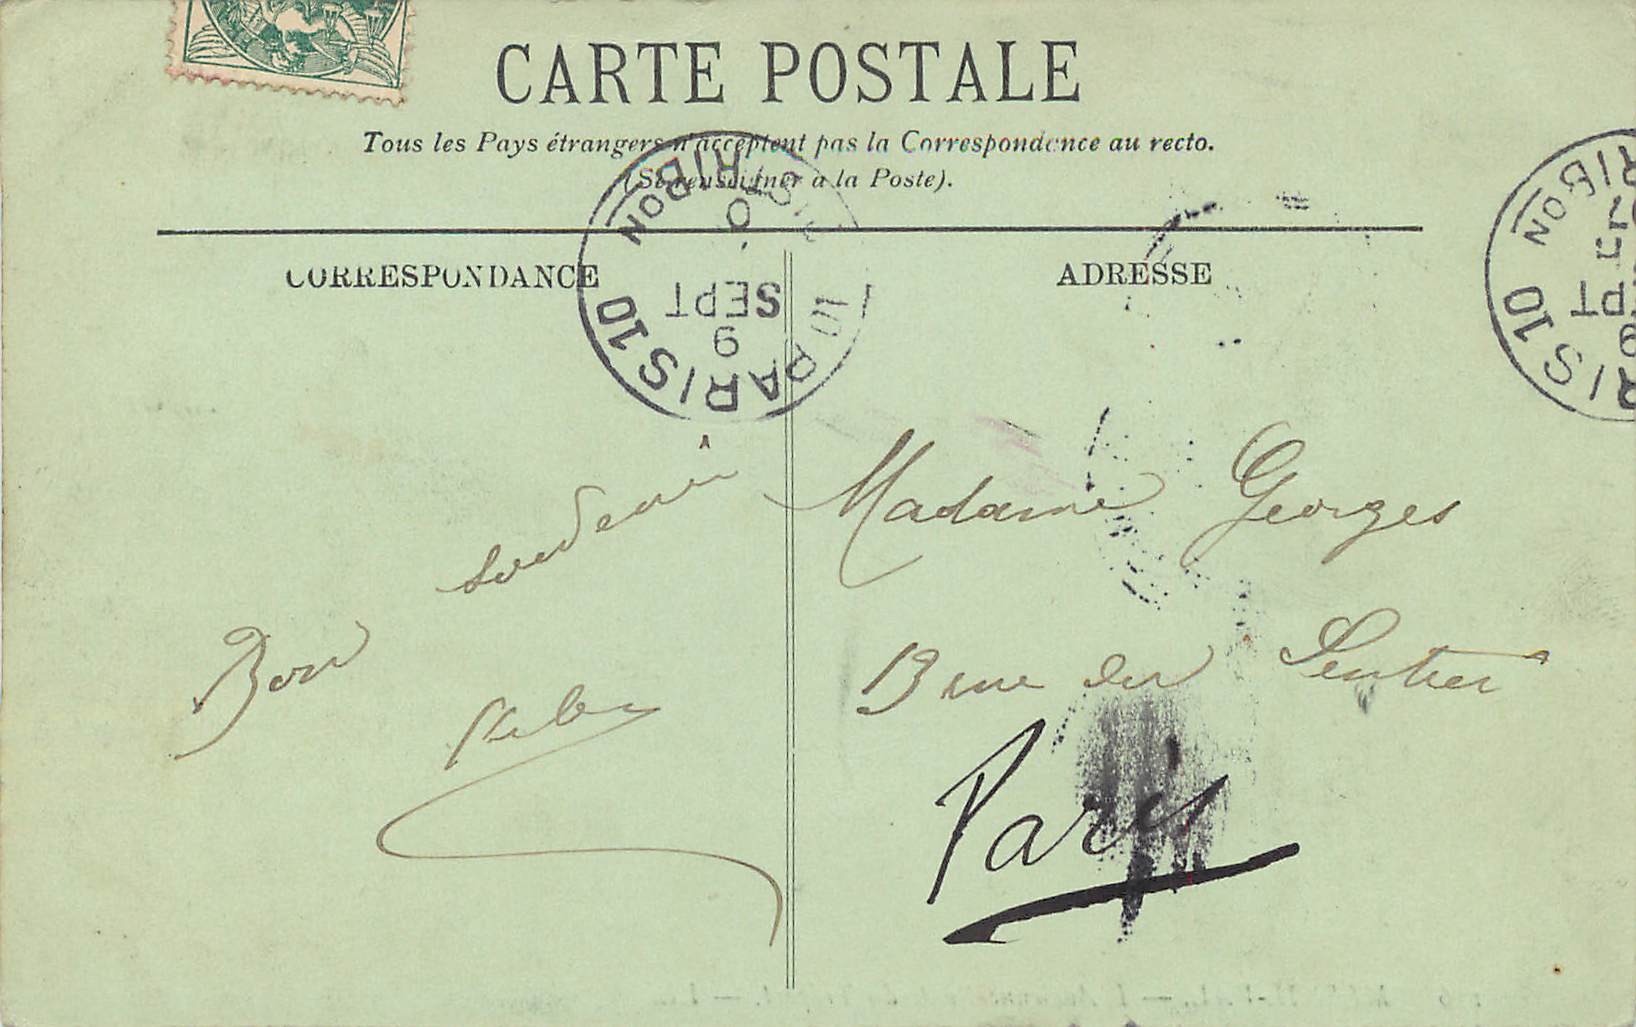 CARTE POSTALE
Tous les Pays étrangers n'acceptent pas la Correspondance au recto.
(Se renseigner à la Poste).
CORRESPONDANCE
ADRESSE
PARIS 10
SEPT
9
Bon souvenir
Madame Georges
13 rue du Sentier
Paris